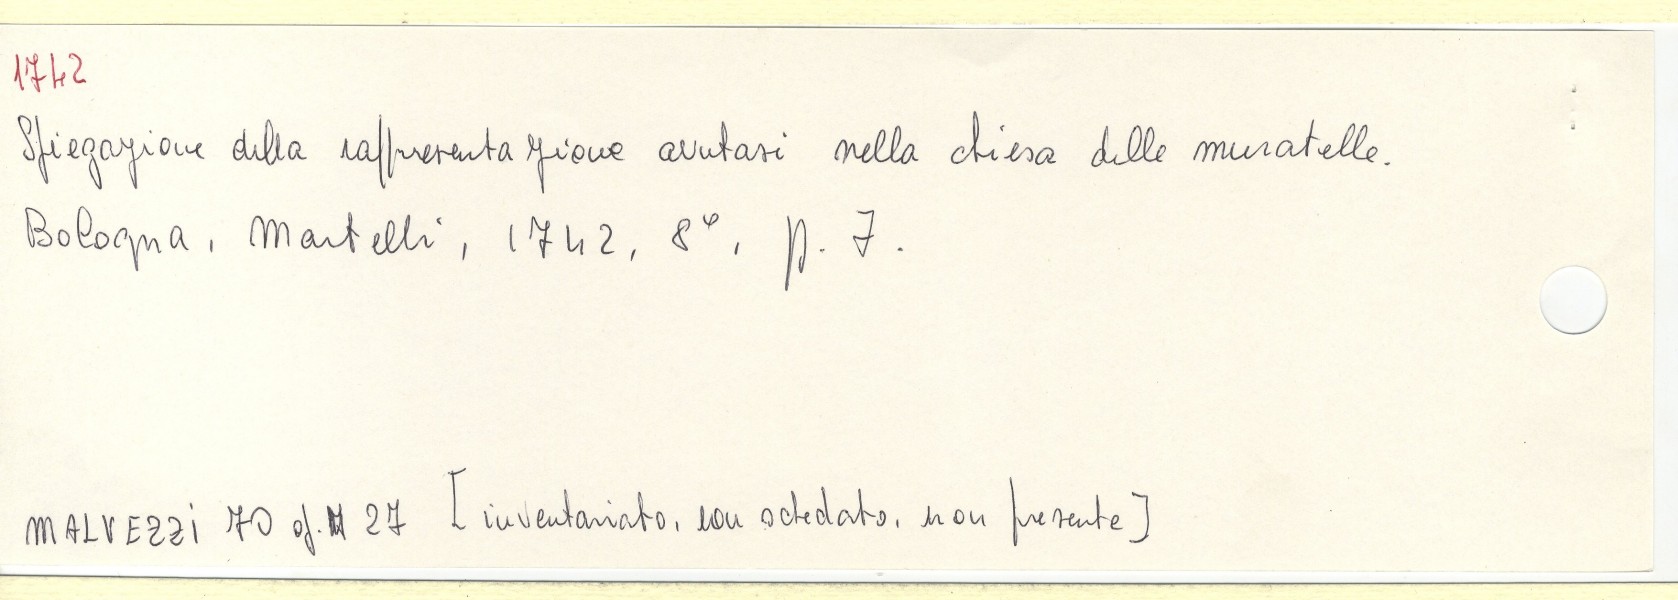 1742
Spiegazione della rappresentazione avutasi nella chiesa delle muratelle.
Bologna, Martelli, 1742, 8°, p. 7.
MALVEZZI 70 of. 27 [inventariato, non schedato, non presente]